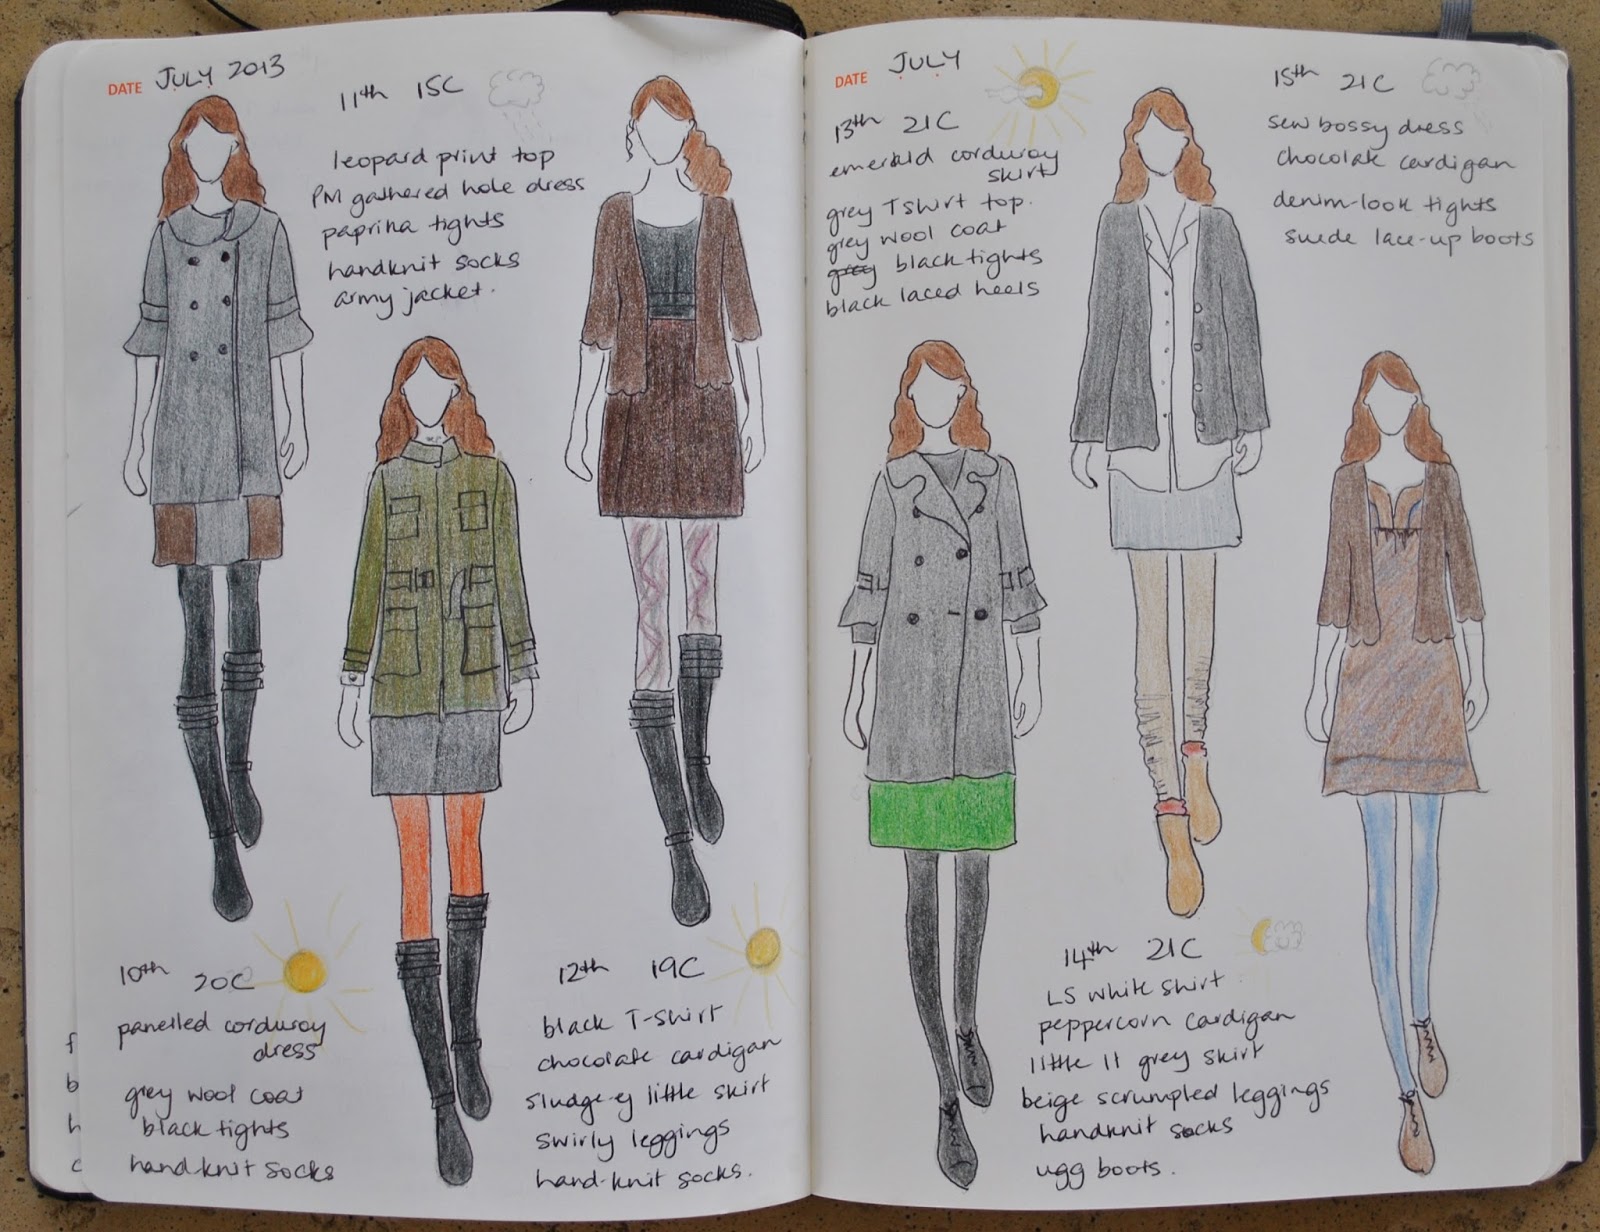 DATE JULY 2013
11th 15C
leopard print top
PM gathered hole dress
paprina tights
handknit socks
army jacket.
10th 20C
panelled corduroy
dress
grey wool coat
black tights
hand-knit socks
12th 19C
black T-shirt
chocolate cardigan
sludge-ey little skirt
swirly leggings
hand-knit socks.
f
b
h
c
DATE JULY
13th 21C
emerald corduroy
skirt
grey Tshirt top.
grey wool coat
grey black tights
black laced heels
15th 21C
sew bossy dress
chocolate cardigan
denim-look tights
suede lace-up boots
14th 21C
LS white shirt.
peppercorn cardigan
little 11 grey skirt
beige scrumpled leggings
handknit socks
ugg boots.